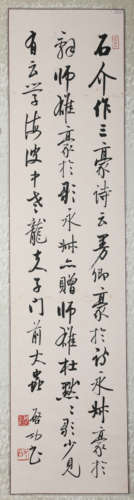 石介作三豪诗云曼卿豪於诗永叔豪於
词师雄豪於歌永叔亦赠师雄杜默之歌少见
有云学海波中老龙夫子门前大虫
启功书